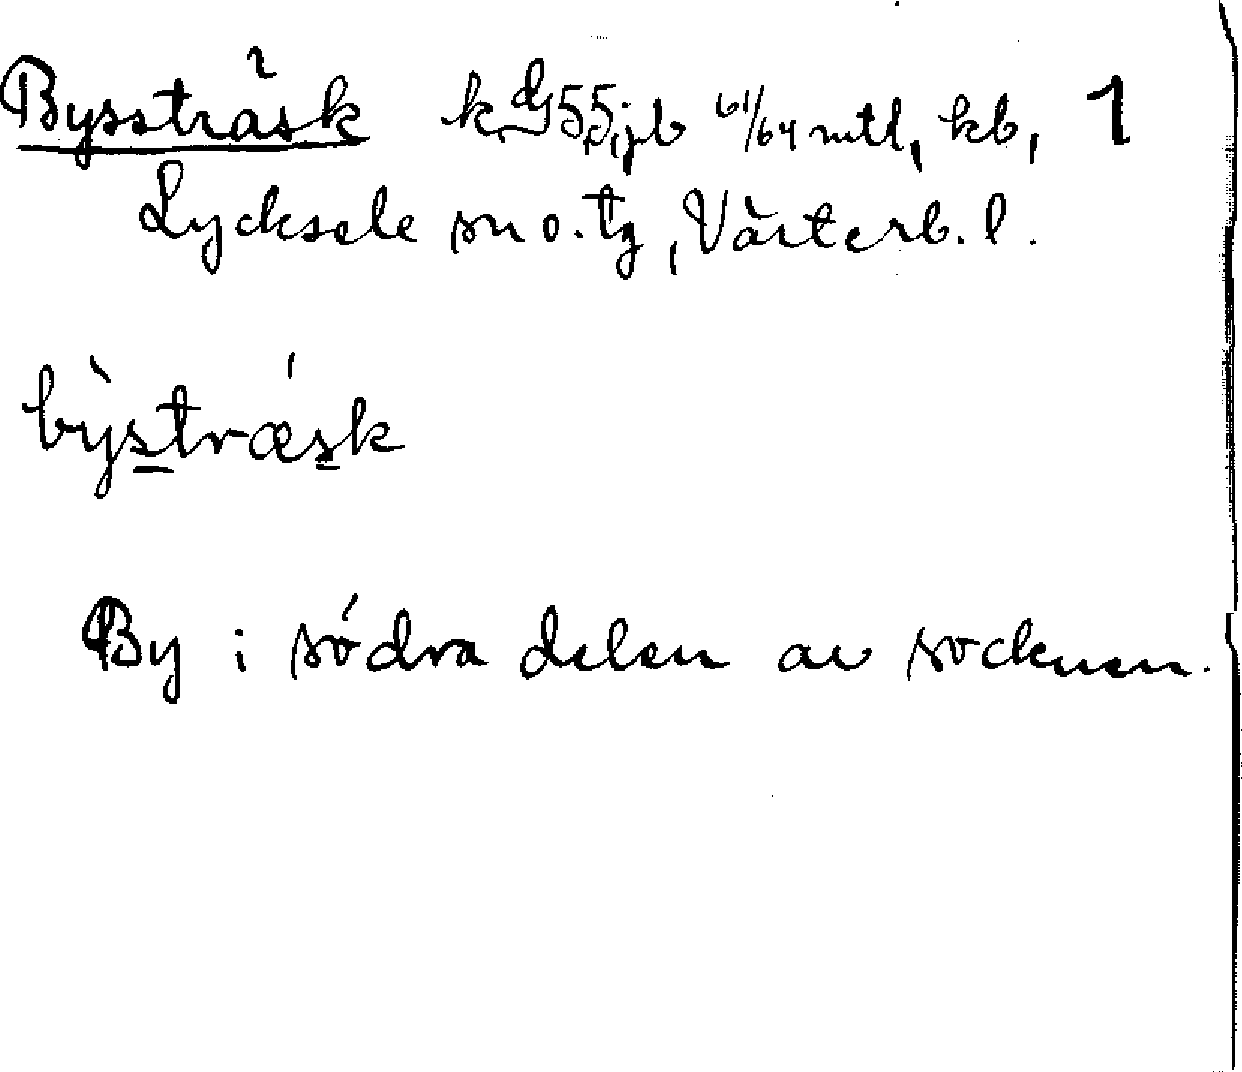 Byssträsk k, dy 55; jb 61/64 mtl, kb, 1
Lycksele sn o. tg, Västerb. l.
bỳstrǽsk
By i södra delen av socknen.